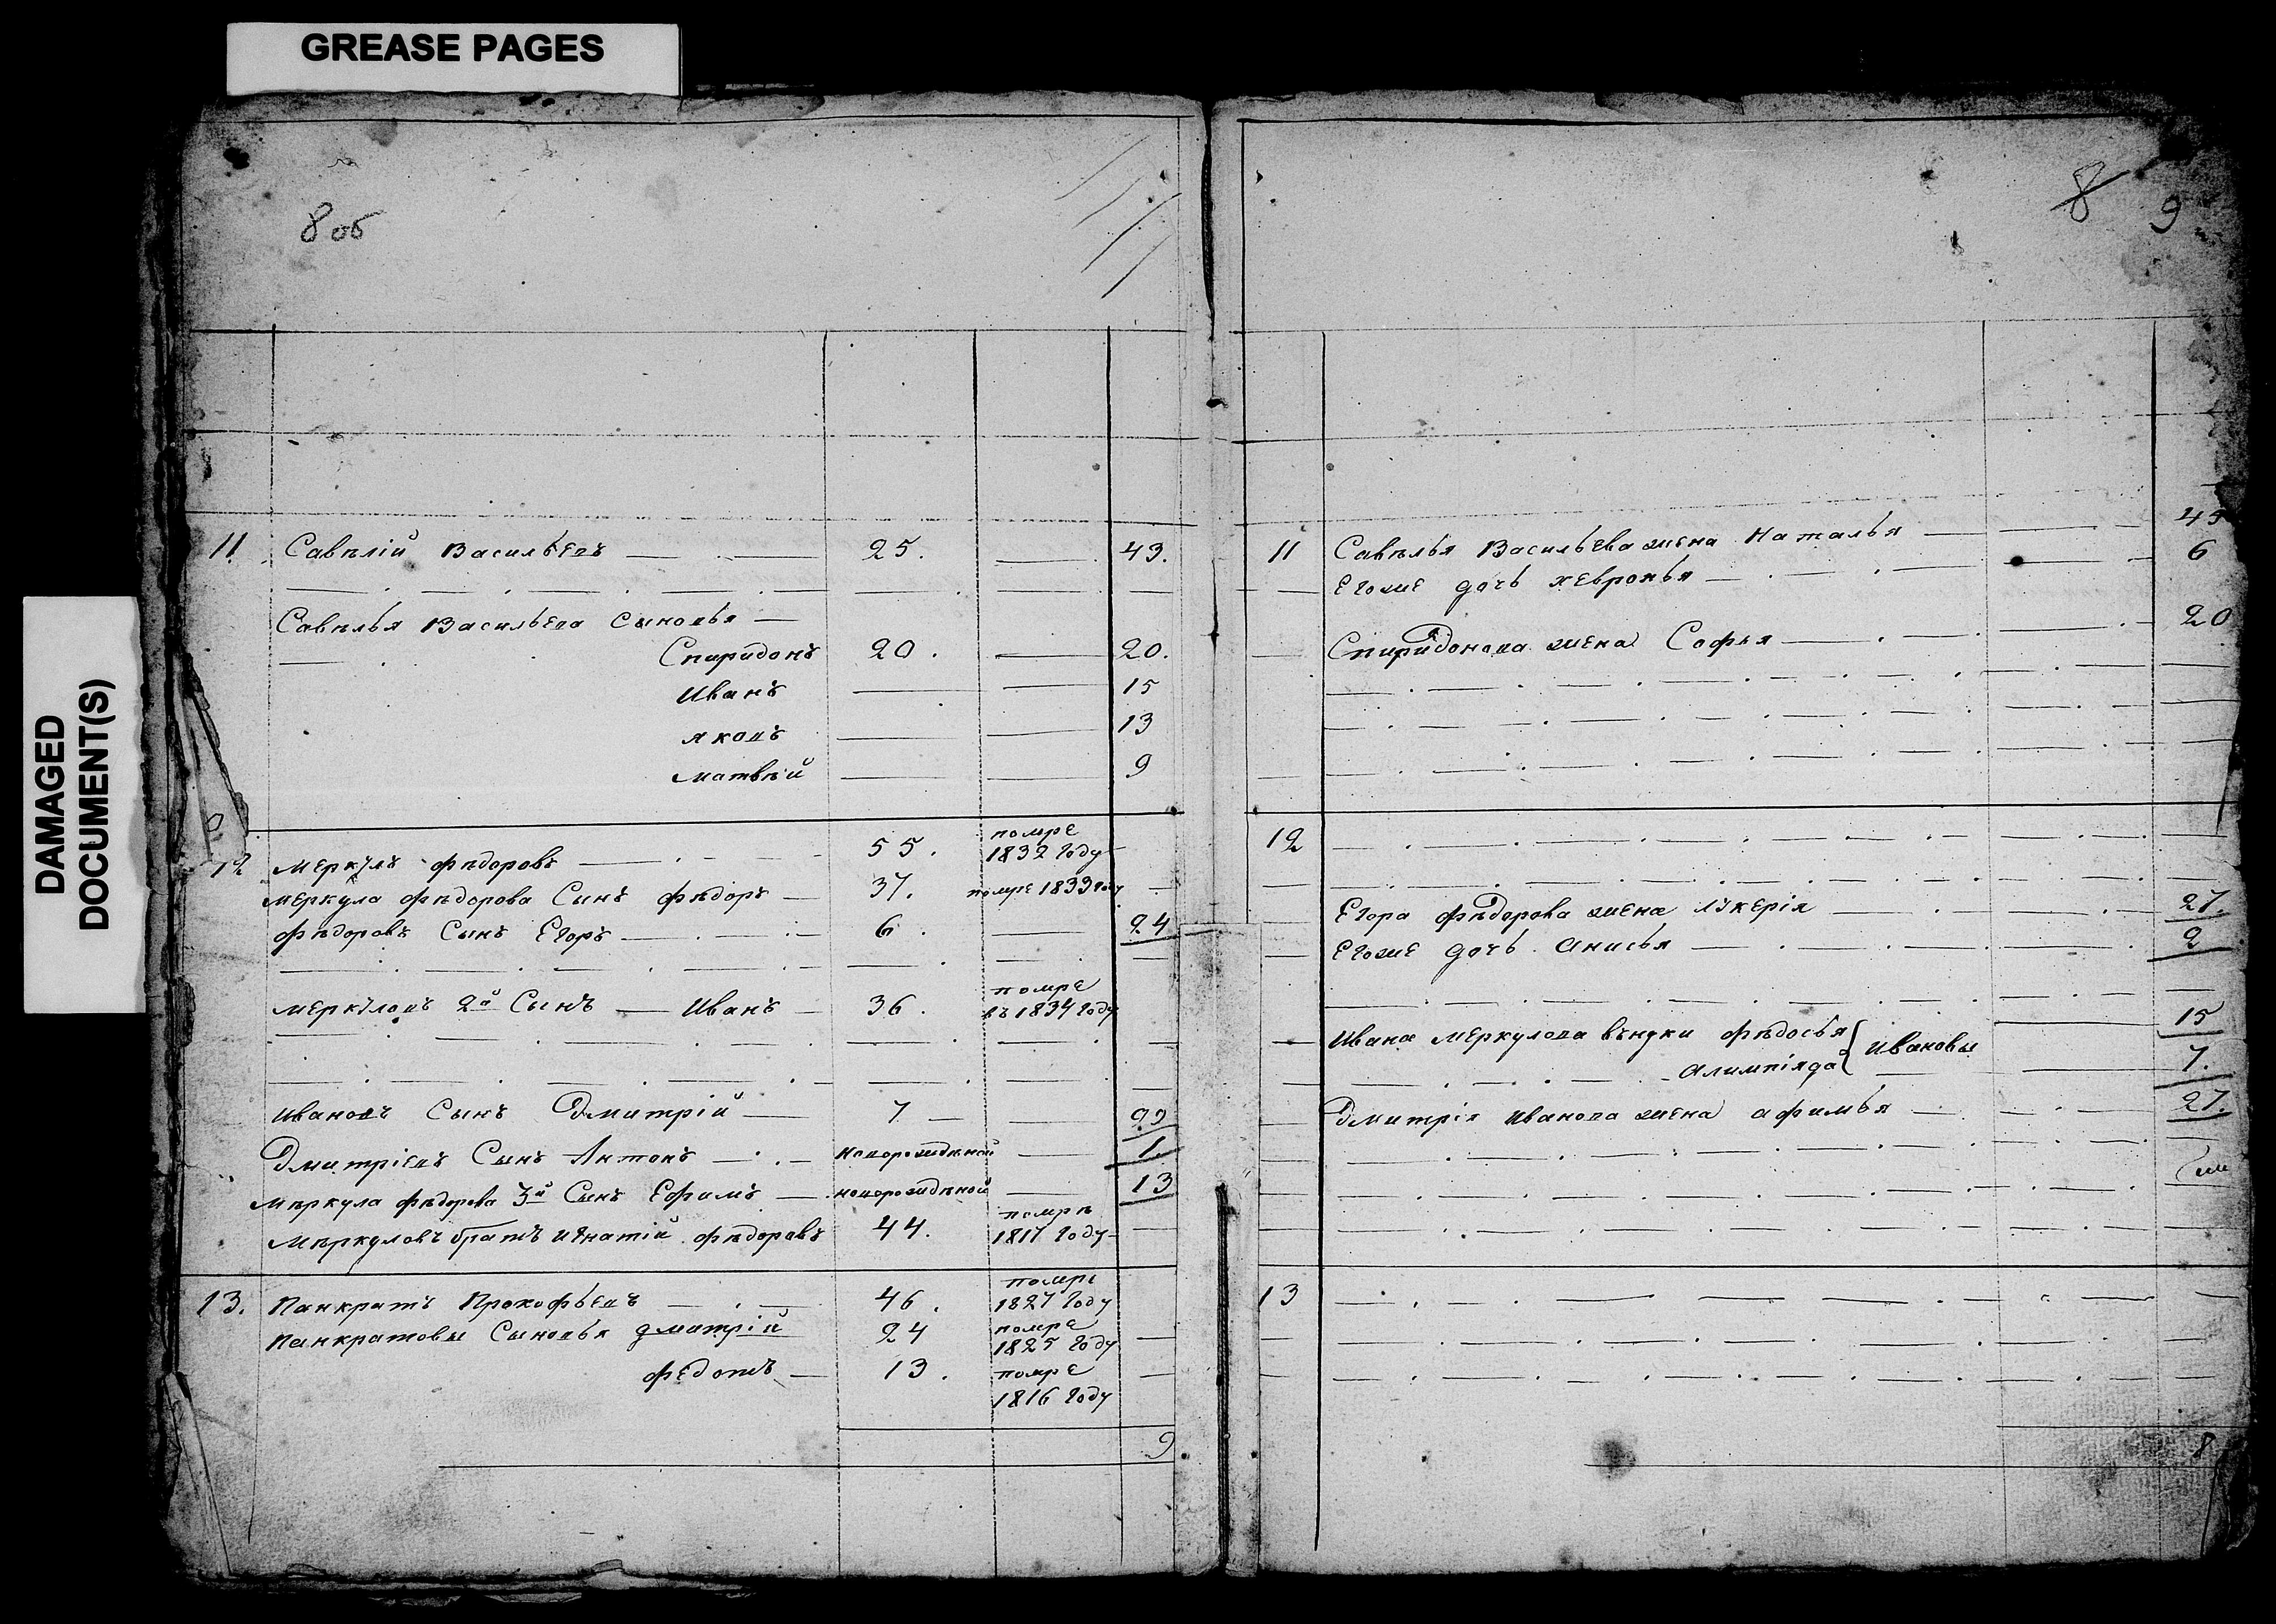 GREASE PAGES
DAMAGED
DOCUMENT(S)
8 об
11 Савѣлій Васильевъ 25. 43.
Савѣлья Васильева Сыновья
Спиридонъ 20. 20.
Иванъ 15
яковъ 13
матвѣй 9
12 меркулъ фѣдоровъ 55. помре 1832 году
меркула фѣдорова Сынъ фѣдоръ 37. помре 1833 году
фѣдоровъ Сынъ Егоръ 6. 24
меркуловъ 2й Сынъ Иванъ 36. помре въ 1834 году
ивановъ Сынъ Дмитрій 7 22
Дмитріевъ Сынъ Антонъ новорожденой 1.
мѣркула фѣдорова 3й Сынъ Ефимъ новорожденой 13
мѣркуловъ братъ игнатій фѣдоровъ 44. помрѣ 1817 году
13. Панкратъ Прокофьевъ 46. помре 1827 году
Панкратовы Сыновья дмитрій 24 помре 1825 году
федотъ 13. помре 1816 году
9
8 9
11 Савѣлья Васильева жена Наталья 45
Егоже дочь хевронья 6
Спиридонова жена Софья 20
12
Егора фѣдорова жена лукерія 27.
Егоже дочь анисья 2
ивана меркулова внуки фѣдосья 15
алимпіяда } ивановы 7.
Дмитрія иванова жена афимья 27.
13
8